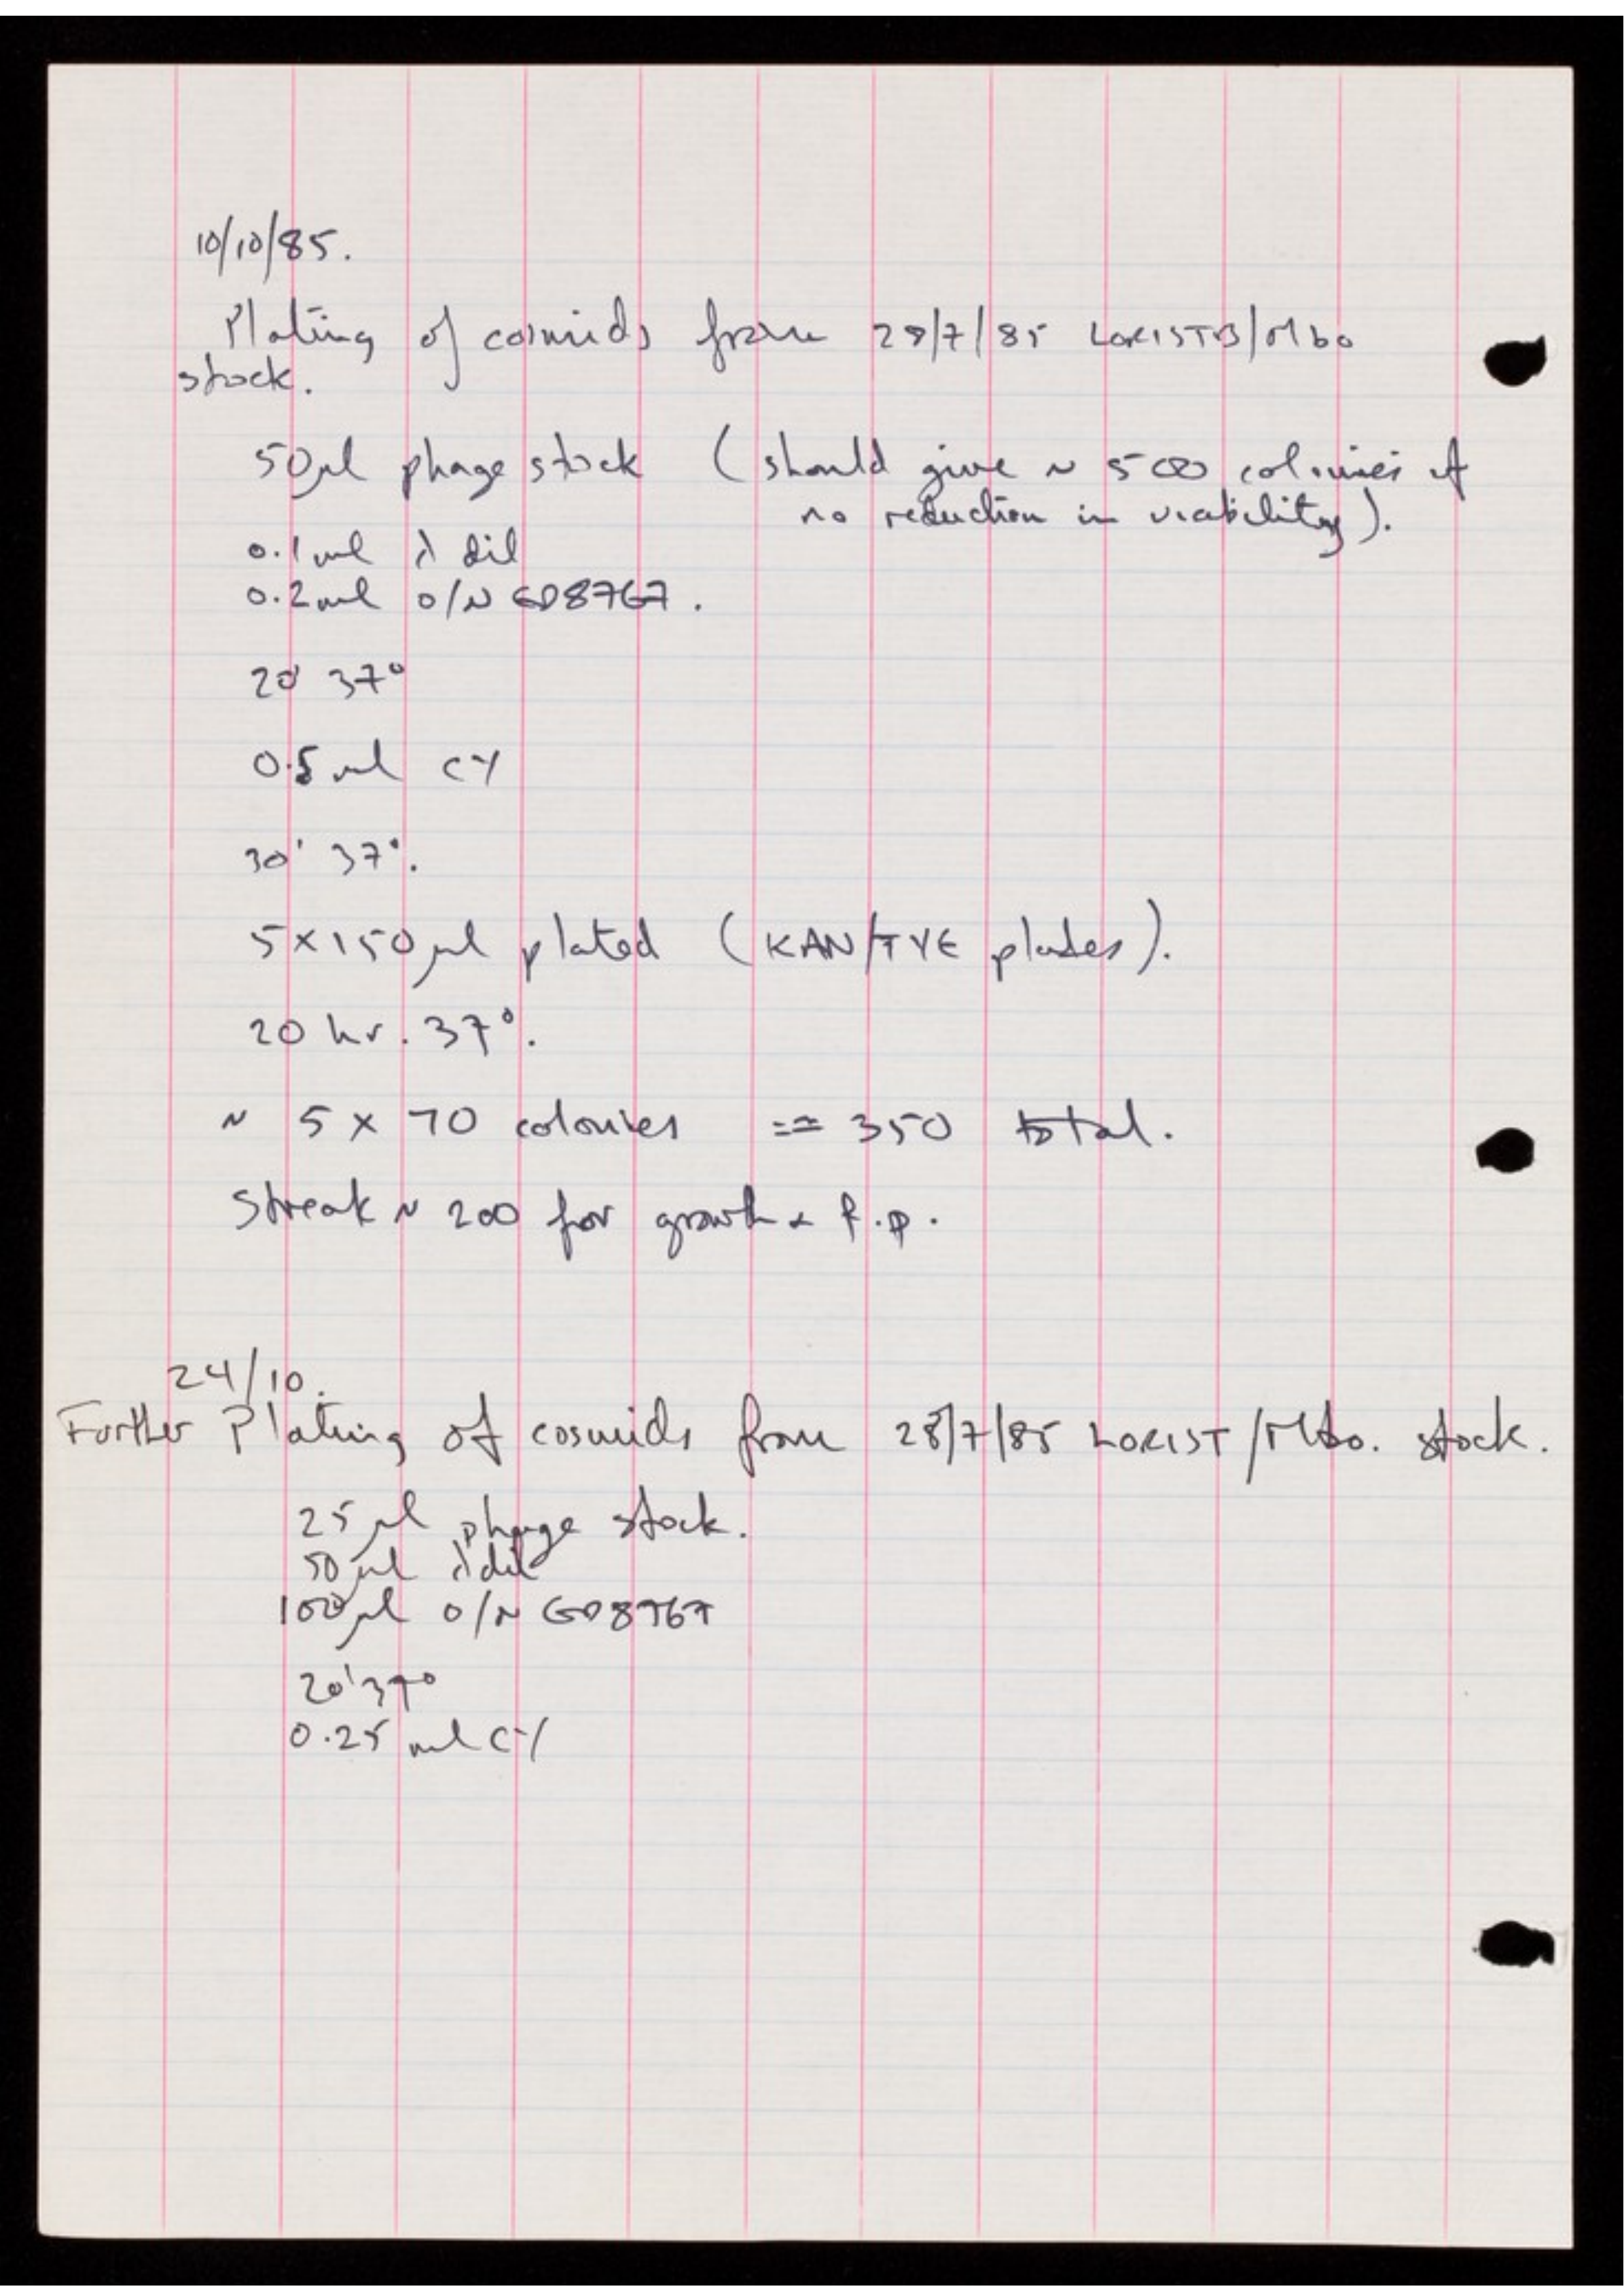 10/10/85.
Plating of cosmids from 28/7/85 LORISTB/Mbo
stock.
50µl phage stock (should give ~ 500 colonies if
no reduction in viability).
0.1ml λ dil
0.2ml O/N ED8767.
20' 37°
0.5ml CY
30' 37°.
5×150µl plated (KAN/TYE plates).
20 hr. 37°.
~ 5 × 70 colonies == 350 total.
Streak ~ 200 for growth & f.p.
24/10.
Further Plating of cosmids from 28/7/85 LORIST/Mbo. stock.
25µl phage stock.
50µl λdil
100µl O/N ED8767
20' 37°
0.25ml CY